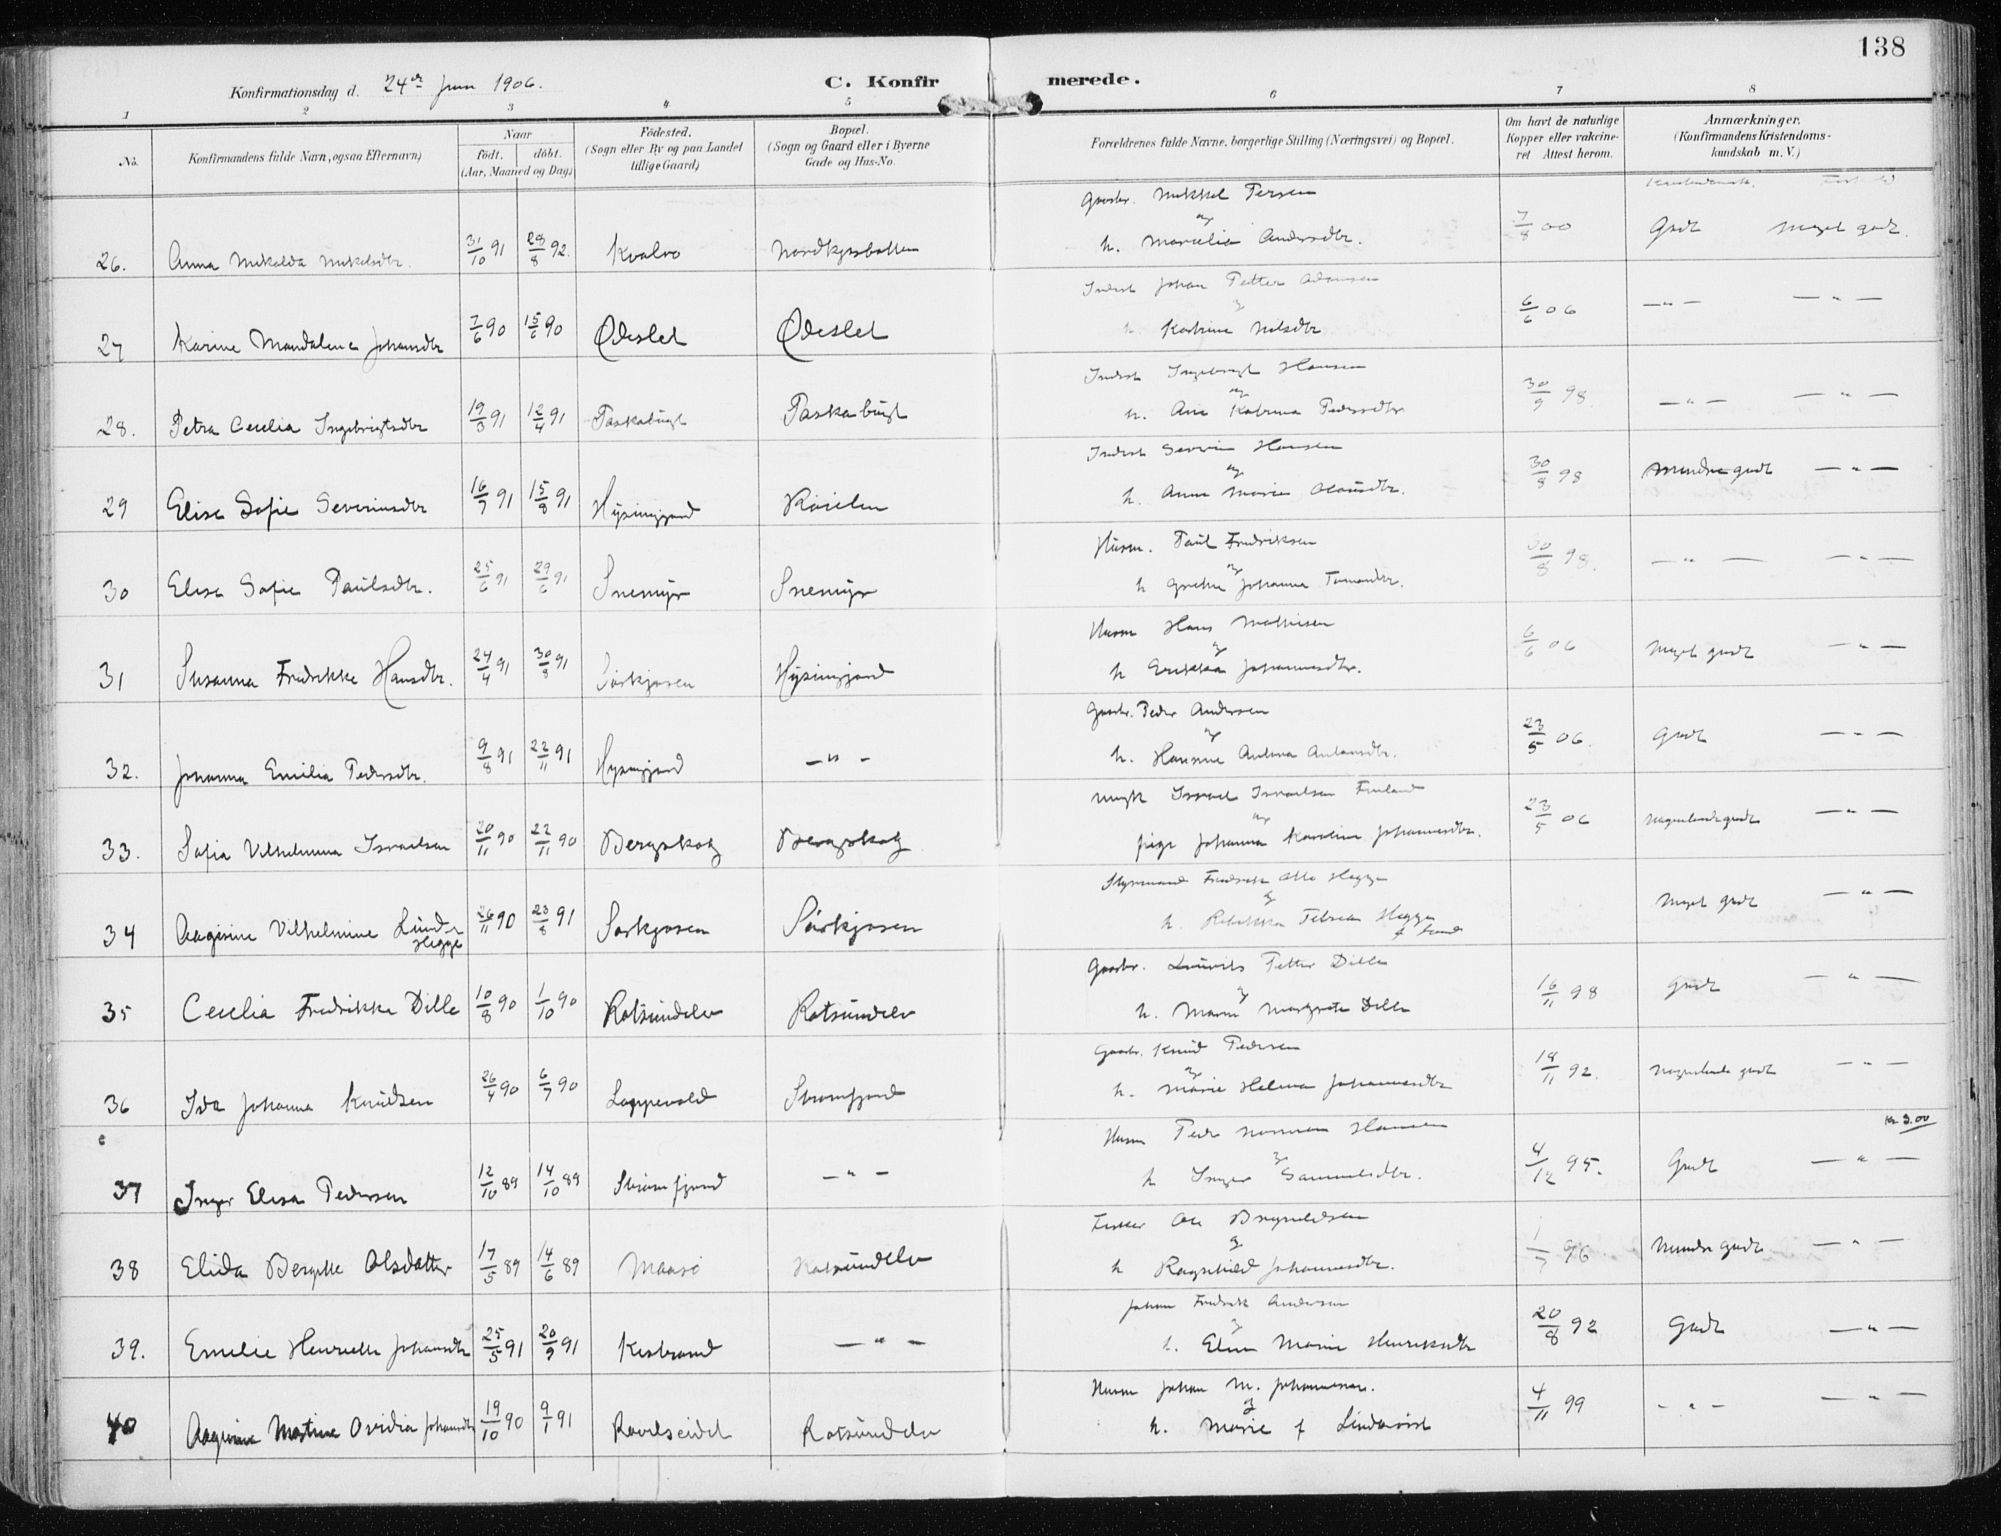 138
Konfirmationsdag d. 24de Juni 1906.
C. Konfirmerede.
1 2 3 4 5 6 7 8
No. Konfirmandens fulde Navn, ogsaa Efternavn) Naar født. døbt. (Aar, Maaned og Dag) Fødested. (Sogn eller By og paa Landet tillige Gaard) Bopæl. (Sogn og Gaard eller i Byerne Gade og Hus-No. Forældrenes fulde Navne, borgerlige Stilling (Næringsvei) og Bopæl. Om havt de naturlige Kopper eller vakcineret Attest herom. Anmærkninger. (Konfirmandens Kristendomskundskab m. V.)
Gaardbr. Mikkel Persen
26. Anna Mikalda Mikelsdtr. 31/10 91 28/8 92. Kvalvo Nordkjosbotten og h. Marcelia Andersdtr. 7/8 00 Godt Meget godt.
Inderst Johan Petter Adamsen
27 Karine Mandalena Johansdtr 7/6 90 15/6 90 Ødeslet Ødeslet og h. Katrine Nilsdtr 6/6 06 — " — — " —
Inderst Ingebrigt Hansen
28. Petra Cecelia Ingebrigtsdtr 19/3 91 12/4 91 Taskabugt Taskabugt og h. Ane Katrina Pedersdtr 30/9 98 — " — — " —
Inderst Severin Hansen
29 Elise Sofie Severinsdtr 16/7 91 15/8 91 Hysingjord Raielen og h. Anne Marie Olausdtr. 30/8 98 Mindre godt — " —
Husm. Paul Fredriksen
30 Elise Sofie Paulsdtr. 25/6 91 29/6 91 Snemyr Snemyr og h Grethe Johanna Tomasdtr. 30/8 98. — " — — " —
Husm Hans Mathisen
31 Susanna Fredrikke Hansdtr. 24/4 91 30/8 91 Sørkjosen Hysingjord og h Erikka Johannesdtr. 6/6 06 Meget godt — " —
Gaardbr. Peder Andersen
32. Johanna Emilia Pedersdtr. 9/8 91 22/11 91 Hysingjord — " — og h. Hansine Antona Antonsdtr. 23/5 06. Godt — " —
Ungk Israel Israelsen Finland
33. Sofia Vilhelmina Israelsen 20/11 90 22/11 90 Bergskog Bergskog og pige Johanna Karoline Johannesdtr. 23/5 06 Nogenlunde godt — " —
Styrmand Fredrik Otto Hegge
34 Aagine Vilhelmine Lund Hegge 26/11 90 23/8 91 Sørkjosen Sørkjosen og h. Rebekka Hegge f Lund Meget godt — " —
Gaardbr. Petter Dille
35 Cecelia Fredrikke Dille 10/8 90 1/10 90 Rotsundelv Rotsundelv og h. Maren Margrete Dille 16/11 98 Godt — " —
Gaardbr. Knud Pedersen
36 Ida Johanna Knudsen 26/4 90 6/7 90 Loppevold Straumfjord og h. Marie Helena Johannesdtr 18/11 92. Nogenlunde godt — " —
Kr 3.00
Husm Peder Hansen
37 Inger Elisa Pedersen 12/10 89 14/10 89 Straumfjord — " — og h Inger Samuelsdtr. 4/12 95. Godt — " —
Fisker Ole Brynildsen
38 Elida Bergitte Olsdatter 17/5 89 14/6 89 Maasø Rotsundelv og h Ragnhild Johannesdtr. 1/7 96 Mindre godt — " —
Johan Fredrik Andersen
39. Emilie Henriette Johansdtr 25/5 91 20/9 91 Kistrand — " — og h. Elen Marie Henriksdtr 20/8 92 Godt — " —
Husm Johan M. Johannesen.
40 Aagine Martine Ovidia Johansdtr 19/10 90 9/1 91 Ravelseidet Rotsundelv og h. Marie f Lindqvist 4/11 99 — " — — " —